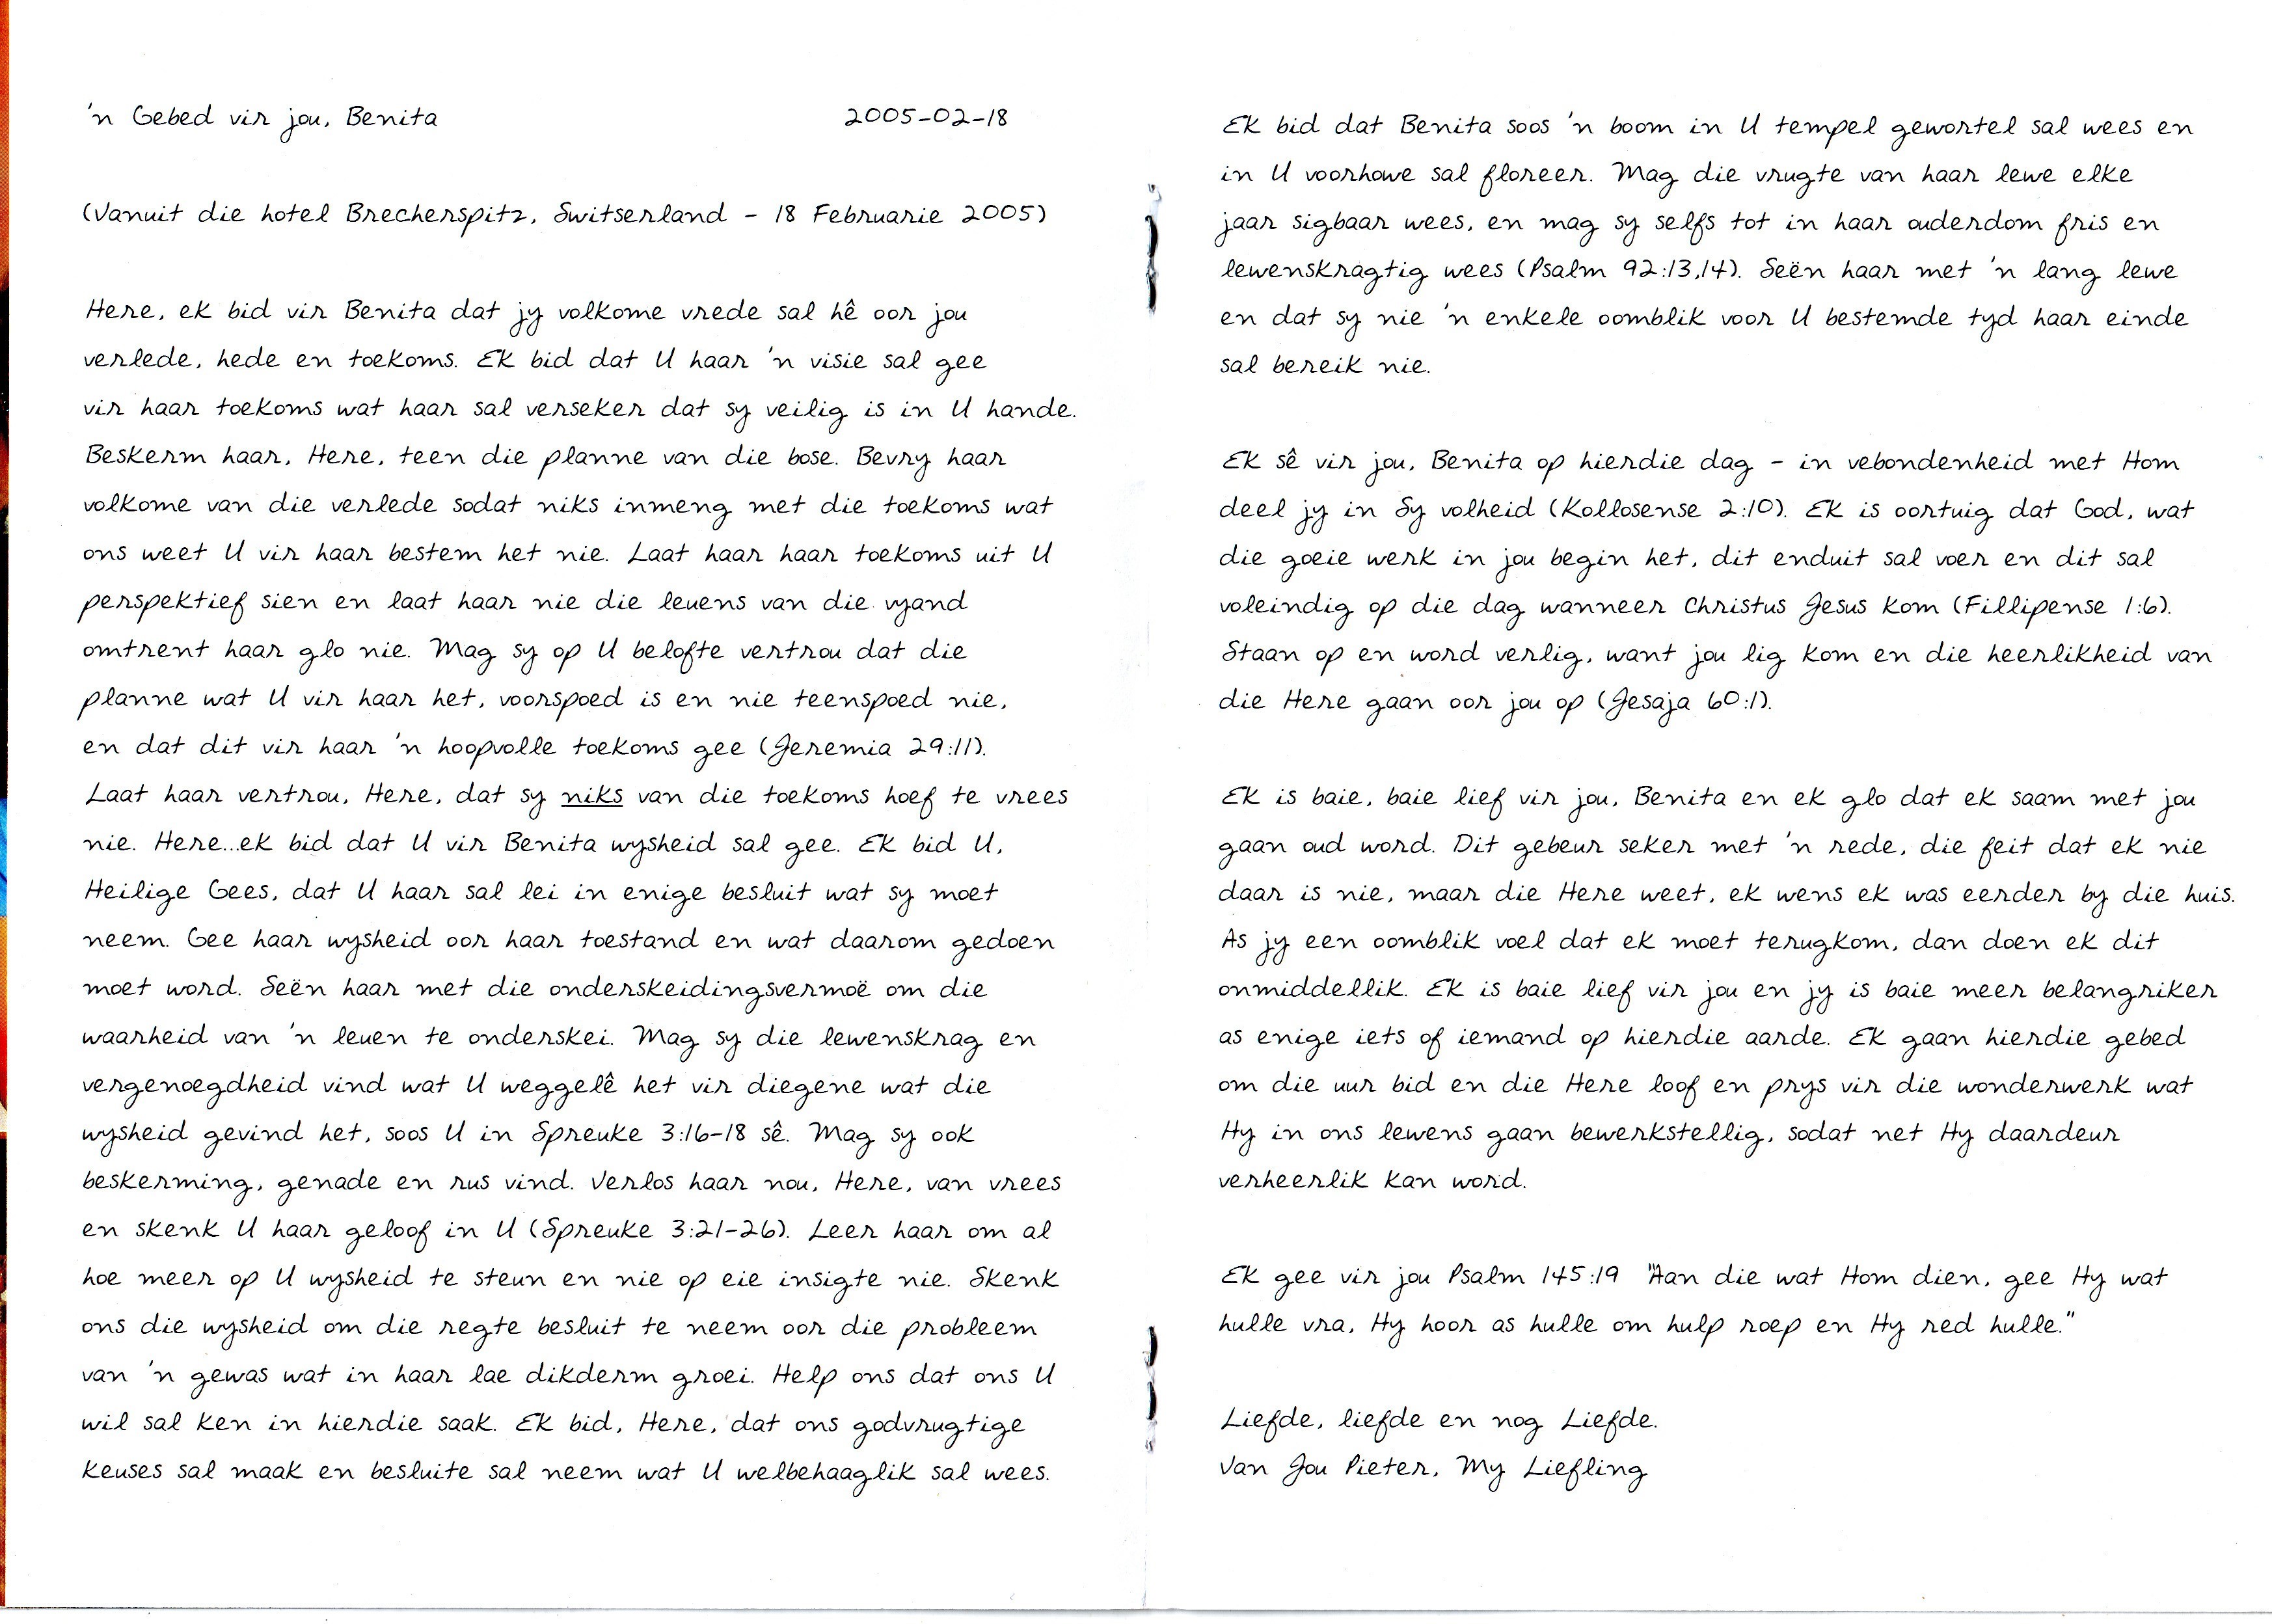 'n Gebed vir jou, Benita 2005-02-18
(Vanuit die hotel Brecherspitz, Switserland - 18 Februarie 2005)
Here, ek bid vir Benita dat jy volkome vrede sal hê oor jou
verlede, hede en toekoms. Ek bid dat U haar 'n visie sal gee
vir haar toekoms wat haar sal verseker dat sy veilig is in U hande.
Beskerm haar, Here, teen die planne van die bose. Bevry haar
volkome van die verlede sodat niks inmeng met die toekoms wat
ons weet U vir haar bestem het nie. Laat haar haar toekoms uit U
perspektief sien en laat haar nie die leuens van die vyand
omtrent haar glo nie. Mag sy op U belofte vertrou dat die
planne wat U vir haar het, voorspoed is en nie teenspoed nie,
en dat dit vir haar 'n hoopvolle toekoms gee (Jeremia 29:11).
Laat haar vertrou, Here, dat sy niks van die toekoms hoef te vrees
nie. Here...ek bid dat U vir Benita wysheid sal gee. Ek bid U,
Heilige Gees, dat U haar sal lei in enige besluit wat sy moet
neem. Gee haar wysheid oor haar toestand en wat daarom gedoen
moet word. Seën haar met die onderskeidingsvermoë om die
waarheid van 'n leuen te onderskei. Mag sy die lewenskrag en
vergenoegdheid vind wat U weggelê het vir diegene wat die
wysheid gevind het, soos U in Spreuke 3:16-18 sê. Mag sy ook
beskerming, genade en rus vind. Verlos haar nou, Here, van vrees
en skenk U haar geloof in U (Spreuke 3:21-26). Leer haar om al
hoe meer op U wysheid te steun en nie op eie insigte nie. Skenk
ons die wysheid om die regte besluit te neem oor die probleem
van 'n gewas wat in haar lae dikderm groei. Help ons dat ons U
wil sal ken in hierdie saak. Ek bid, Here, dat ons godvrugtige
keuses sal maak en besluite sal neem wat U welbehaaglik sal wees.
Ek bid dat Benita soos 'n boom in U tempel gewortel sal wees en
in U voorhowe sal floreer. Mag die vrugte van haar lewe elke
jaar sigbaar wees, en mag sy selfs tot in haar ouderdom fris en
lewenskragtig wees (Psalm 92:13,14). Seën haar met 'n lang lewe
en dat sy nie 'n enkele oomblik voor U bestemde tyd haar einde
sal bereik nie.
Ek sê vir jou, Benita op hierdie dag - in vebondenheid met Hom
deel jy in Sy volheid (Kollosense 2:10). Ek is oortuig dat God, wat
die goeie werk in jou begin het, dit enduit sal voer en dit sal
voleindig op die dag wanneer Christus Jesus kom (Fillipense 1:6).
Staan op en word verlig, want jou lig kom en die heerlikheid van
die Here gaan oor jou op (Jesaja 60:1).
Ek is baie, baie lief vir jou, Benita en ek glo dat ek saam met jou
gaan oud word. Dit gebeur seker met 'n rede, die feit dat ek nie
daar is nie, maar die Here weet, ek wens ek was eerder by die huis.
As jy een oomblik voel dat ek moet terugkom, dan doen ek dit
onmiddellik. Ek is baie lief vir jou en jy is baie meer belangriker
as enige iets of iemand op hierdie aarde. Ek gaan hierdie gebed
om die uur bid en die Here loof en prys vir die wonderwerk wat
Hy in ons lewens gaan bewerkstellig, sodat net Hy daardeur
verheerlik kan word.
Ek gee vir jou Psalm 145:19 "Aan die wat Hom dien, gee Hy wat
hulle vra, Hy hoor as hulle om hulp roep en Hy red hulle."
Liefde, liefde en nog Liefde.
Van Jou Pieter, My Liefling